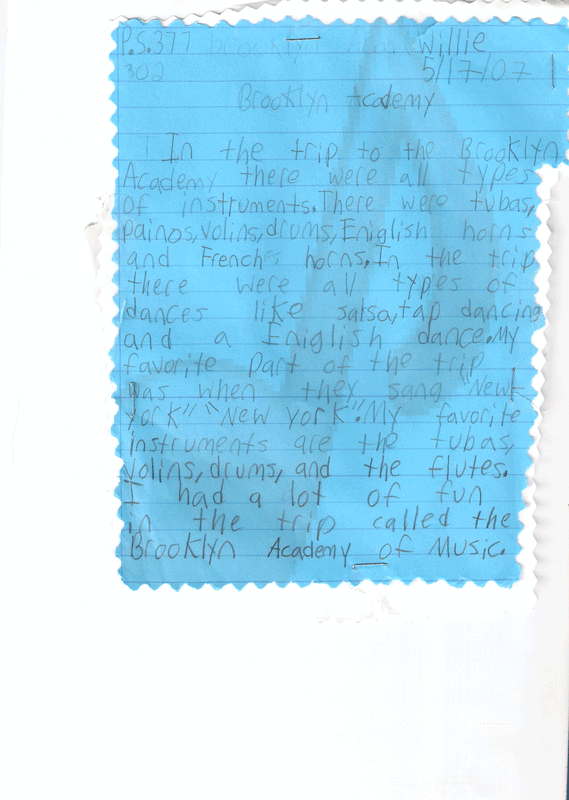 P.S.377 Willie
302 5/17/07
Brooklyn Academy
In the trip to the Brooklyn
Academy there were all types
of instruments.There were tubas,
painos,volins,drums,Eniglish horns
and Frenches horns,In the trip
there were all types of
dances like salsa,tap dancing
and a Eniglish dance.My
favorite part of the trip
was when they sang "New
York" "New York".My favorite
instruments are the tubas,
volins,drums, and the flutes.
I had a lot of fun
in the trip called the
Brooklyn Academy of Music.